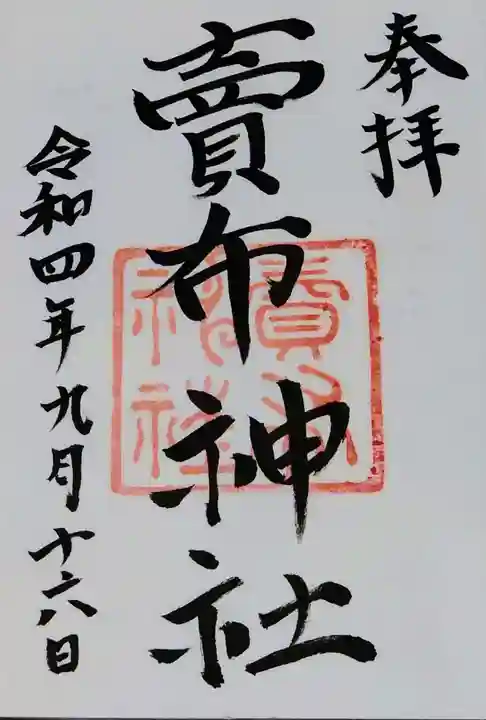 奉拝
賣布神社
賣布神社
令和四年九月十六日